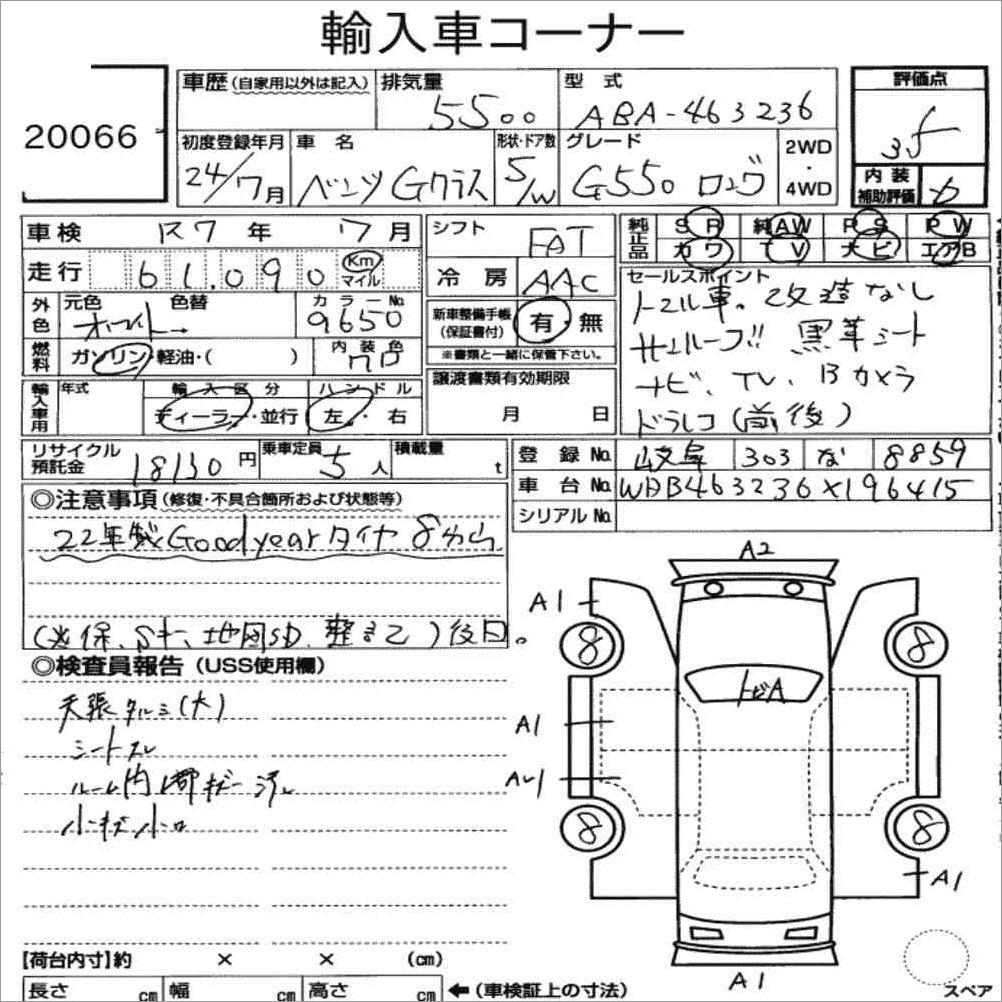 輸入車コーナー
20066
車歴(自家用以外は記入) 排気量 5500 型式 ABA-463236
評価点 3.5
初度登録年月 24/7月 車名 ベンツ Gクラス 形状・ドア数 5/W グレード G550 ロング 2WD・4WD
内装補助評価
車検 R7年 7月 シフト FAT 純正品 SR 純AW PS PW
カワ TV ナビ エアB
走行 61,090 Km マイル 冷房 AAC
セールスポイント
外色 元色 ホワイト 色替 カラーNo. 9650
新車整備手帳(保証書付) 有・無
※書類と一緒に保管下さい。
トマル車。改造なし
サンルーフ 黒革シート
ナビ、TV、Bカメラ
ドラレコ(前後)
燃料 ガソリン・軽油・( ) 内装色 クロ
譲渡書類有効期限 月 日
輸入車用 年式 輸入区分 ディーラー・並行 ハンドル 左・右
リサイクル預託金 18130円 乗車定員 5人 積載量 t
登録No. 岐阜 303 な 8859
車台No. WDB463236X196415
シリアルNo.
◎注意事項(修復・不具合箇所および状態等)
22年製Goodyearタイヤ8分山
(※保、Sキー、地図SD、整まで)後日。
◎検査員報告(USS使用欄)
天張タルミ(大)
シートスレ
ルーム内キズ
小キズ小凹
A2
A1
8 8
トビA
A1
A1
8 8
A1
A1
【荷台内寸】約 × × (cm)
長さ cm 幅 cm 高さ cm ←(車検証上の寸法)
スペア